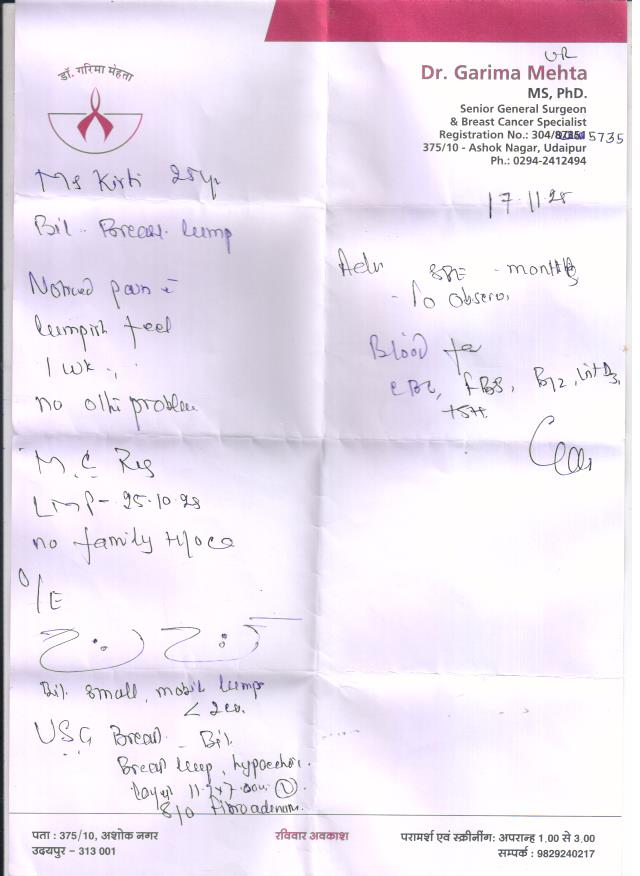 डॉ. गरिमा मेहता
UR
Dr. Garima Mehta
MS, PhD.
Senior General Surgeon
& Breast Cancer Specialist
Registration No.: 304/ 15735
375/10 - Ashok Nagar, Udaipur
Ph.: 0294-2412494
Ms Kirti 25yr
17.11.25
Bil. Breast lump
Noticed pain c̄
lumpish feel
1 wk
no othe problem
M.C Reg
LMP - 25.10.25
no family H/o ca
O/E
Bil. small, mobile lumps
< 2cm.
USG Breast - Bil.
Breast lump, hypoechoic.
largest 11.7x7.
S/o Fibroadenoma.
Adv SBE - monthly
- To observe
Blood for
CBC, FBS, B12, Vit D3,
TSH.
पता : 375/10, अशोक नगर
उदयपुर – 313 001
रविवार अवकाश
परामर्श एवं स्क्रीनींग: अपरान्ह 1.00 से 3.00
सम्पर्क : 9829240217